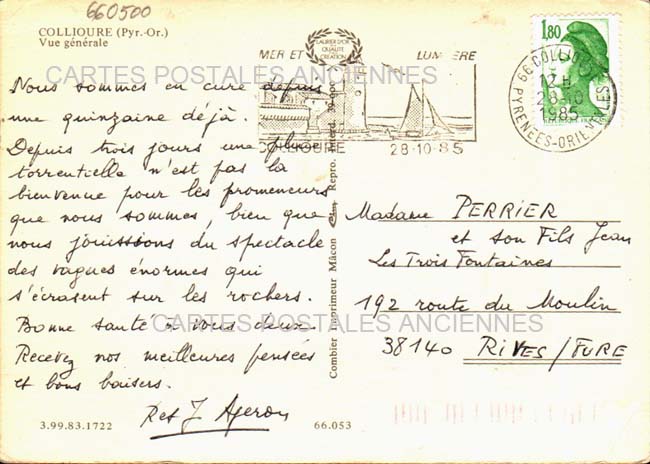 660500
COLLIOURE (Pyr.-Or.)
Vue générale
LAURIER D'OR
QUALITÉ
CRÉATION
MER ET LUMIERE
COLLIOURE 28-10-85
1,80
66 COLLIOURE
17 H
28-10
1985
PYRENEES-ORIENTALES
CARTES POSTALES ANCIENNES
Nous sommes en cure depuis
une quinzaine déjà.
Depuis trois jours une pluie
torrentielle n'est pas la
bienvenue pour les promeneurs
que nous sommes, bien que
nous jouissions du spectacle
des vagues énormes qui
s'écrasent sur les rochers.
Bonne santé à vous deux.
Recevez nos meilleures pensées
et bons baisers.
R et J Ageron
Combier Imprimeur Mâcon
Madame PERRIER
et son Fils Jean
Les Trois Fontaines
192 route du Moulin
38140 RIVES/FURE
CARTES POSTALES ANCIENNES
3.99.83.1722
66.053